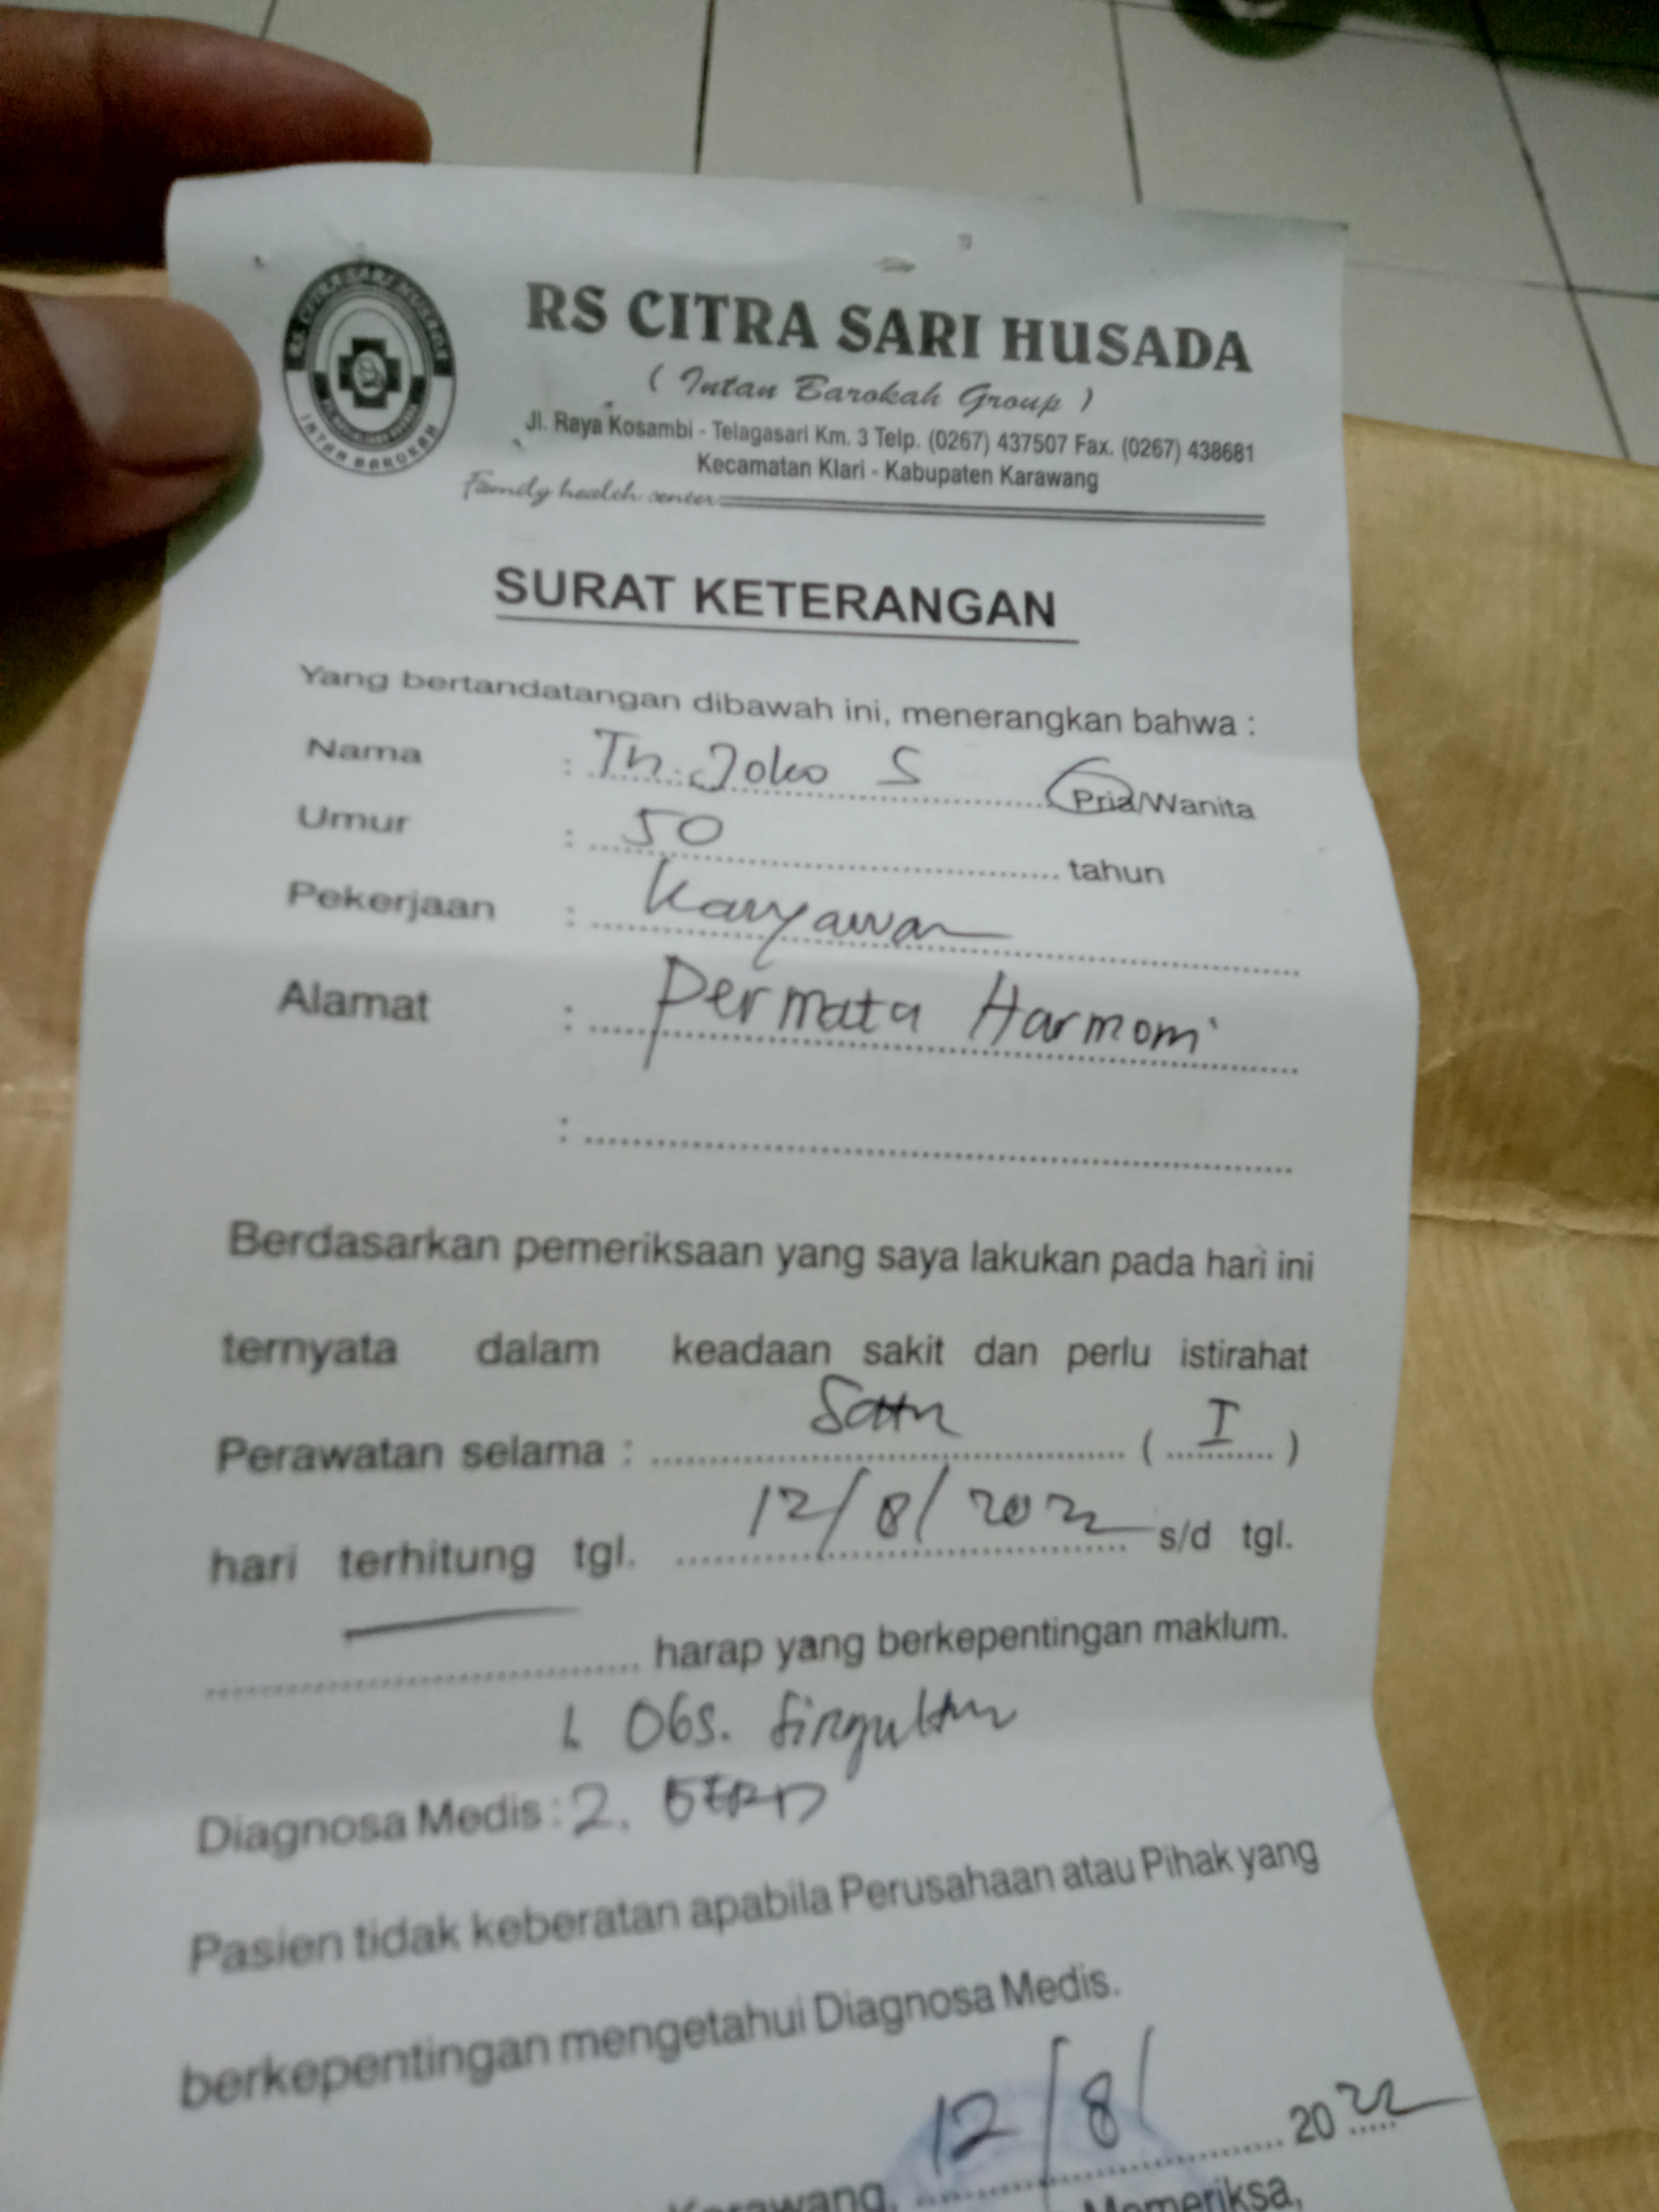 RS CITRA SARI HUSADA
INTAN BAROKAH
RS CITRA SARI HUSADA
( Intan Barokah Group )
Jl. Raya Kosambi - Telagasari Km. 3 Telp. (0267) 437507 Fax. (0267) 438681
Kecamatan Klari - Kabupaten Karawang
Family health center
SURAT KETERANGAN
Yang bertandatangan dibawah ini, menerangkan bahwa :
Nama : Tn. Joko S Pria/Wanita
Umur : 50 tahun
Pekerjaan : Karyawan
Alamat : Permata Harmoni
:
Berdasarkan pemeriksaan yang saya lakukan pada hari ini
ternyata dalam keadaan sakit dan perlu istirahat
Perawatan selama : Satu ( I )
hari terhitung tgl. 12/8/2022 s/d tgl.
— harap yang berkepentingan maklum.
1. Obs. Singultus
Diagnosa Medis : 2. GERD
Pasien tidak keberatan apabila Perusahaan atau Pihak yang
berkepentingan mengetahui Diagnosa Medis.
Karawang, 12/8/ 2022
Memeriksa,